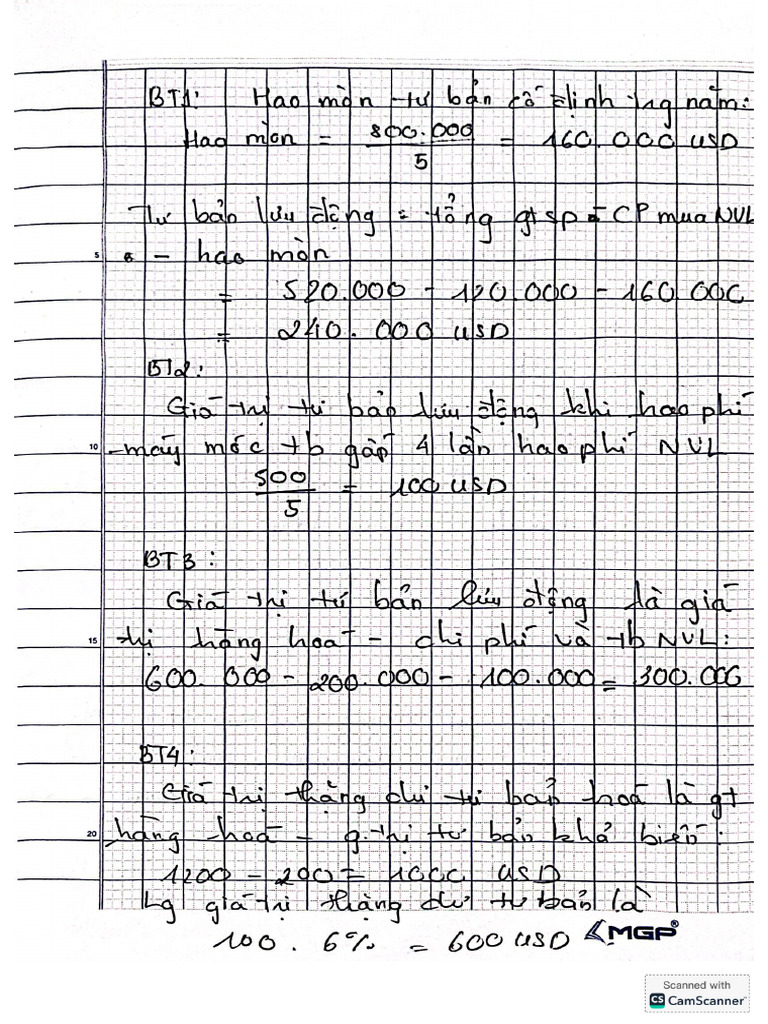 BT1: Hao mòn tư bản cố định trg năm:
Hao mòn = 800.000 / 5 = 160.000 USD
Tư bản lưu động = tổng gt sp - CP mua NVL
- hao mòn
= 520.000 - 120.000 - 160.000
= 240.000 USD
BT2:
Giá trị tư bản lưu động khi hao phí
máy móc tb gấp 4 lần hao phí NVL
500 / 5 = 100 USD
BT3:
Giá trị tư bản lưu động là giá
trị hàng hoá - chi phí và tb NVL:
600.000 - 200.000 - 100.000 = 300.000
BT4:
Giá trị thặng dư tư bản hoá là gt
hàng hoá - g.trị tư bản khả biến:
1200 - 200 = 1000 USD
Lg giá trị thặng dư tư bản là
100 . 6% = 600 USD
MGP
5
10
15
20
Scanned with
CS CamScanner